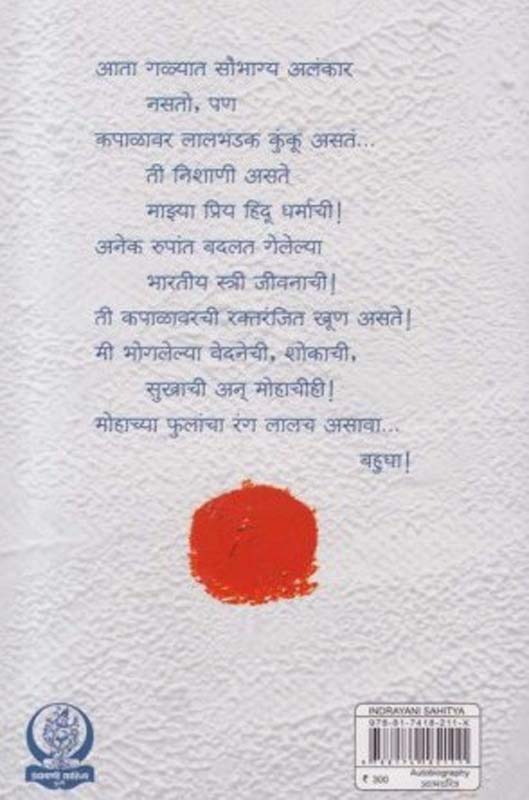 आता गळ्यात सौभाग्य अलंकार
नसतो, पण
कपाळावर लालभडक कुंकू असतं...
ती निशाणी असते
माझ्या प्रिय हिंदू धर्माची!
अनेक रुपांत बदलत गेलेल्या
भारतीय स्त्री जीवनाची!
ती कपाळावरची रक्तरंजित खूण असते!
मी भोगलेल्या वेदनेची, शोकाची,
सुखाची अन् मोहाचीही!
मोहाच्या फुलांचा रंग लालच असावा...
बहुधा!
INDRAYANI SAHITYA
978-81-7418-211-X
₹ 300
Autobiography
आत्मचरित्र
इंद्रायणी साहित्य